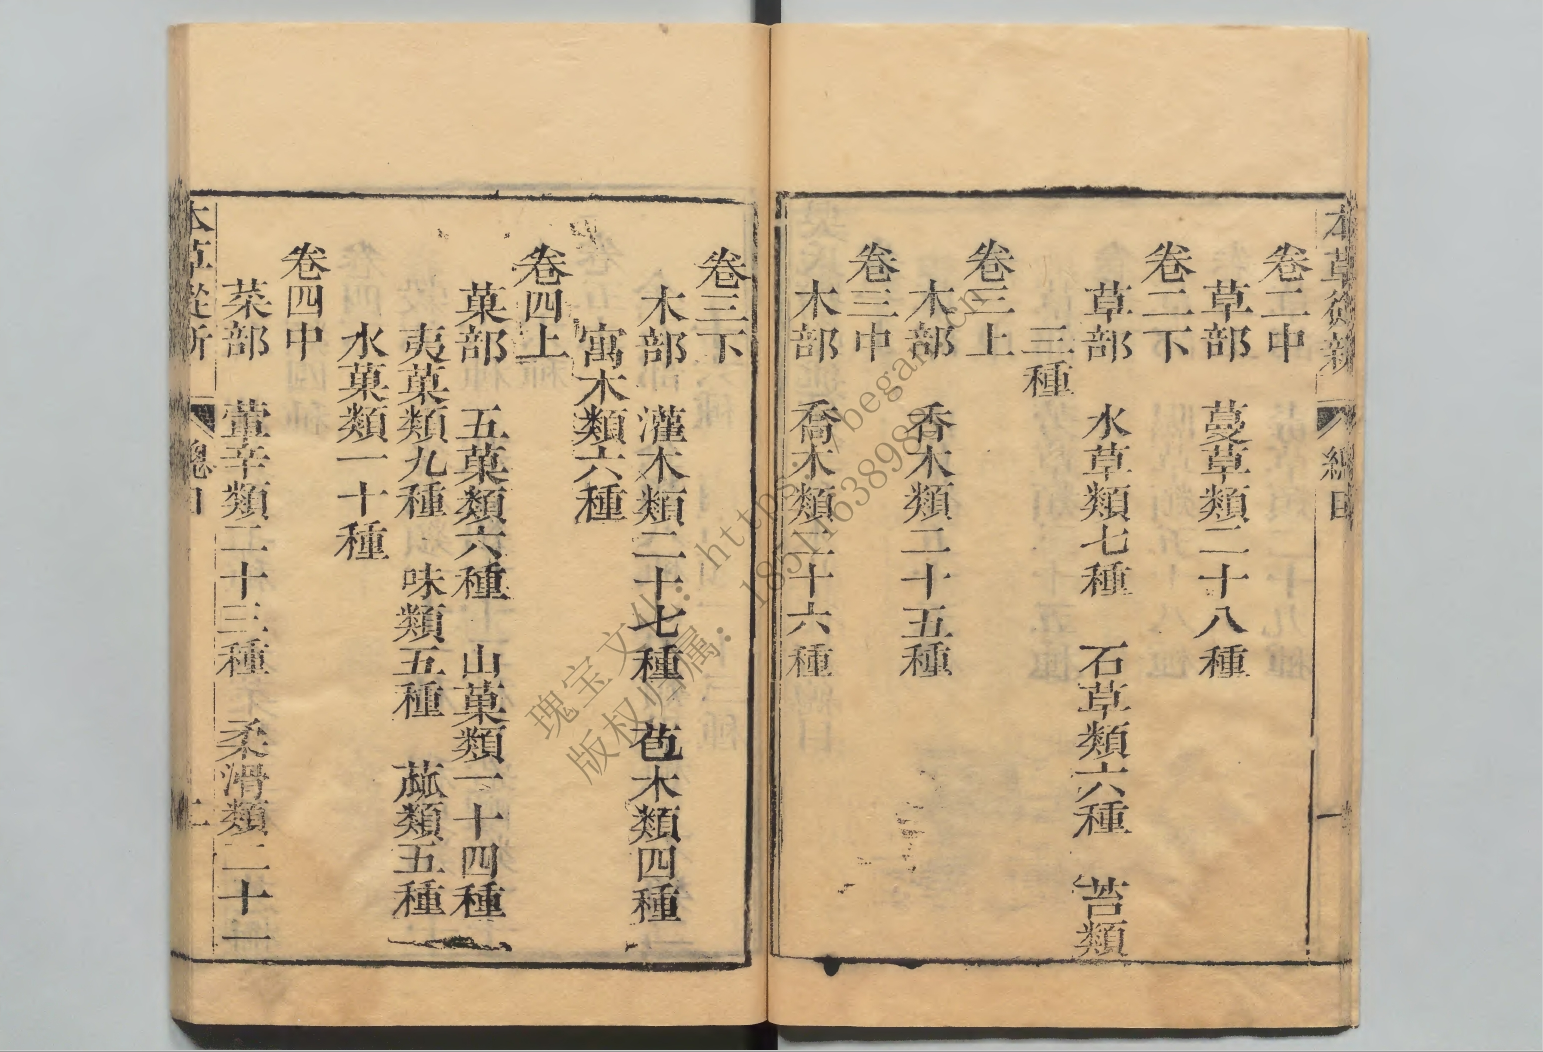 本草從新 總目 一
卷二中
草部 蔓草類二十八種
卷二下
草部 水草類七種 石草類六種 苔類
三種
卷三上
木部 香木類二十五種
卷三中
木部 喬木類二十六種
卷三下
木部 灌木類二十七種 苞木類四種
寓木類六種
卷四上
菓部 五菓類六種 山菓類一十四種
夷菓類九種 味類五種 蓏類五種
水菓類一十種
卷四中
菜部 葷辛類二十三種 柔滑類二十一
本草從新 總目 二
瑰宝文化:https:
版权归属: